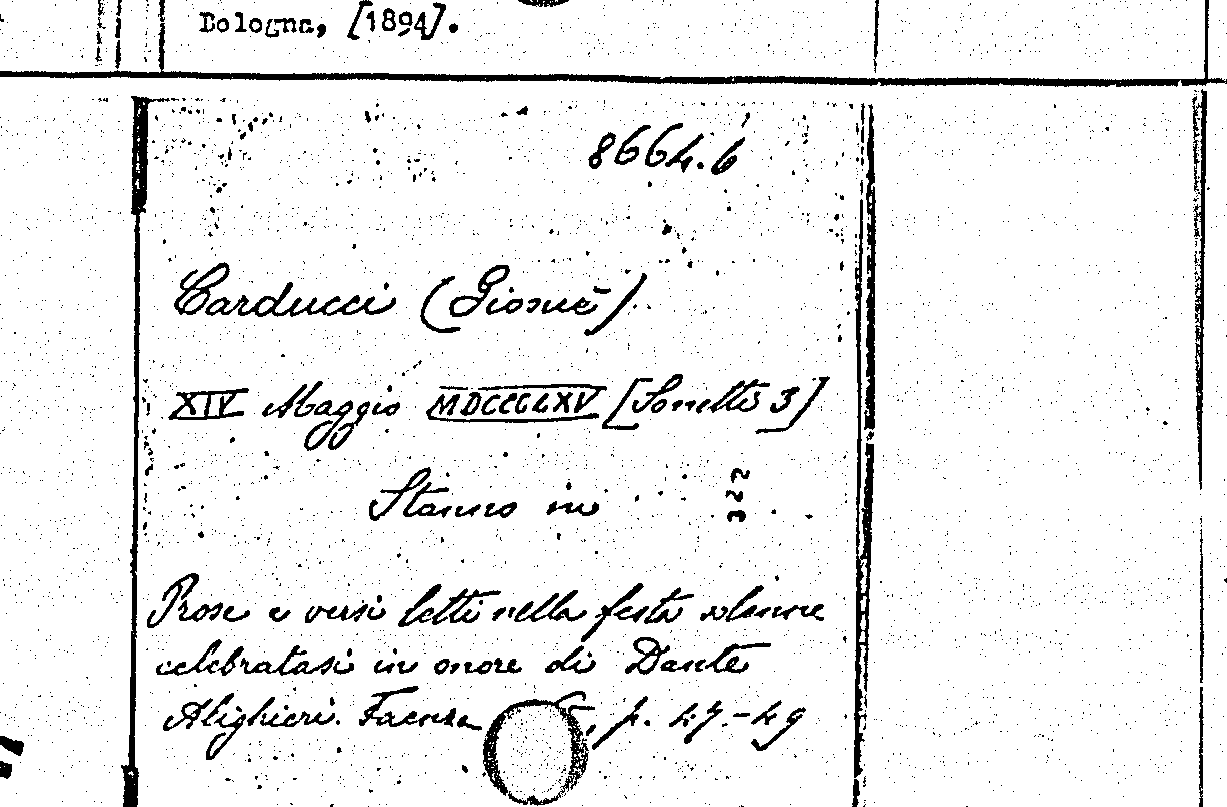 Bologna, [1894].
8664.6
Carducci (Giosuè)
XIV Maggio MDCCCLXV [Sonetti 3]
Stanno in
322
Prose e versi letti nella festa solenne
celebratasi in onore di Dante
Alighieri. Faenza , p. 47-49